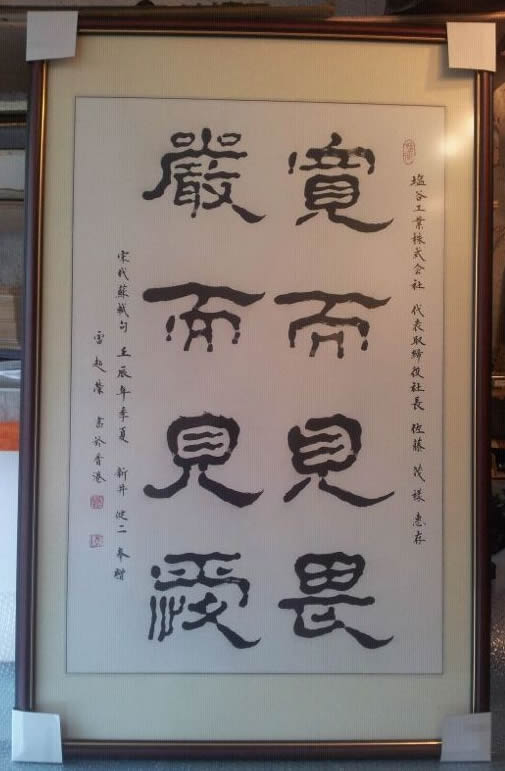 塩谷工業株式会社 代表取締役社長 佐藤 茂 様 惠存
寬而見畏
嚴而見愛
宋代蘇軾句 壬辰年季夏 新井 健二 奉贈
雷超榮 書於香港